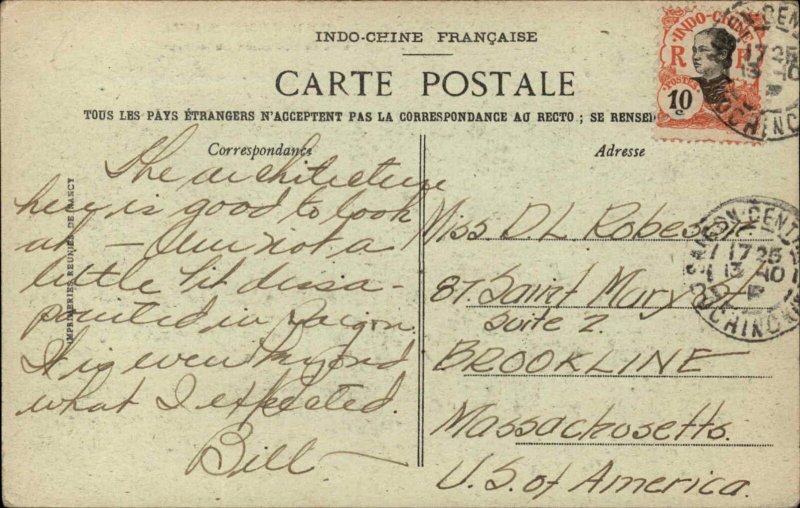 INDO-CHINE FRANÇAISE
CARTE POSTALE
TOUS LES PAYS ÉTRANGERS N'ACCEPTENT PAS LA CORRESPONDANCE AU RECTO ; SE RENSEI
Correspondance
Adresse
The architecture
here is good to look
at — Am not a
little bit dissa-
pointed in Saigon.
It is even beyond
what I expected.
Bill —
Miss. D.L. Robes
87. Saint Mary St
Suite 2.
BROOKLINE
Massachusetts.
U.S. of America.
IMPRIMERIES REUNIES DE NANCY
INDO-CHINE
R F
POSTES
10
c
17 25
13 10
CHINC
SAIGON-CENT
17 25
13 10
CHINCHI